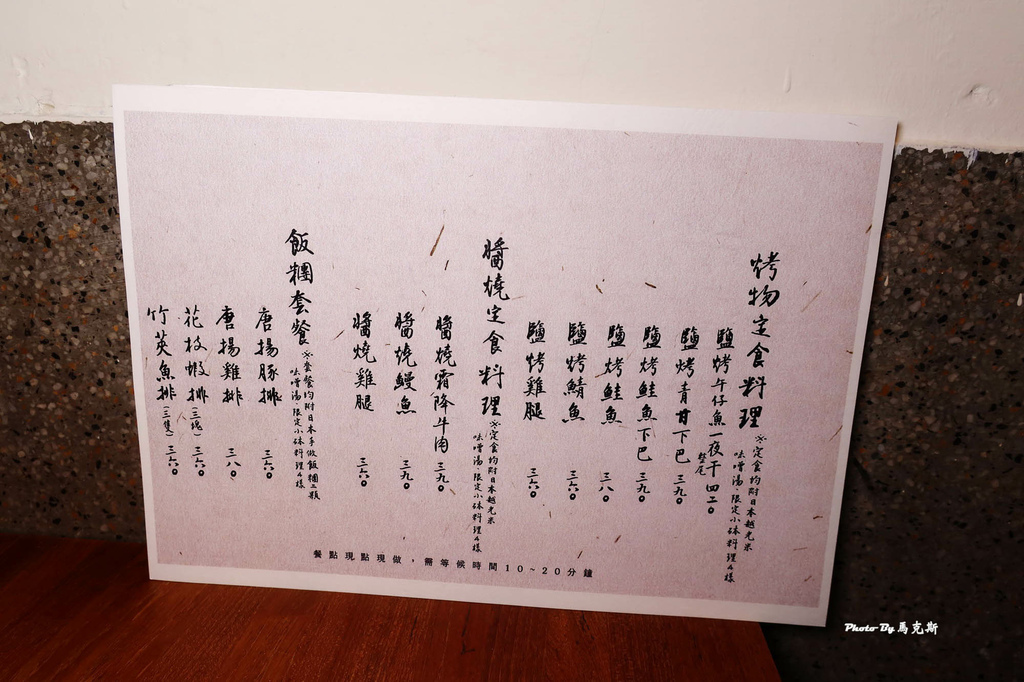 烤物定食料理
※定食均附日本越光米
味噌湯、限定小缽料理4樣
鹽烤午仔魚一夜干 四二0
整尾
鹽烤青甘下巴 三九0
鹽烤鮭魚下巴 三九0
鹽烤鮭魚 三八0
鹽烤鯖魚 三六0
鹽烤雞腿 三六0
醬燒定食料理
※定食均附日本越光米
味噌湯、限定小缽料理4樣
醬燒霜降牛肉 三九0
醬燒鰻魚 三九0
醬燒雞腿 三六0
飯糰套餐
※套餐均附日本手做飯糰二顆
味噌湯、限定小缽料理4樣
唐揚豚排 三六0
唐揚雞排 三八0
花枝蝦排(三塊) 三六0
竹莢魚排(三隻) 三六0
餐點現點現做，需等候時間10~20分鐘
Photo By 馬克斯